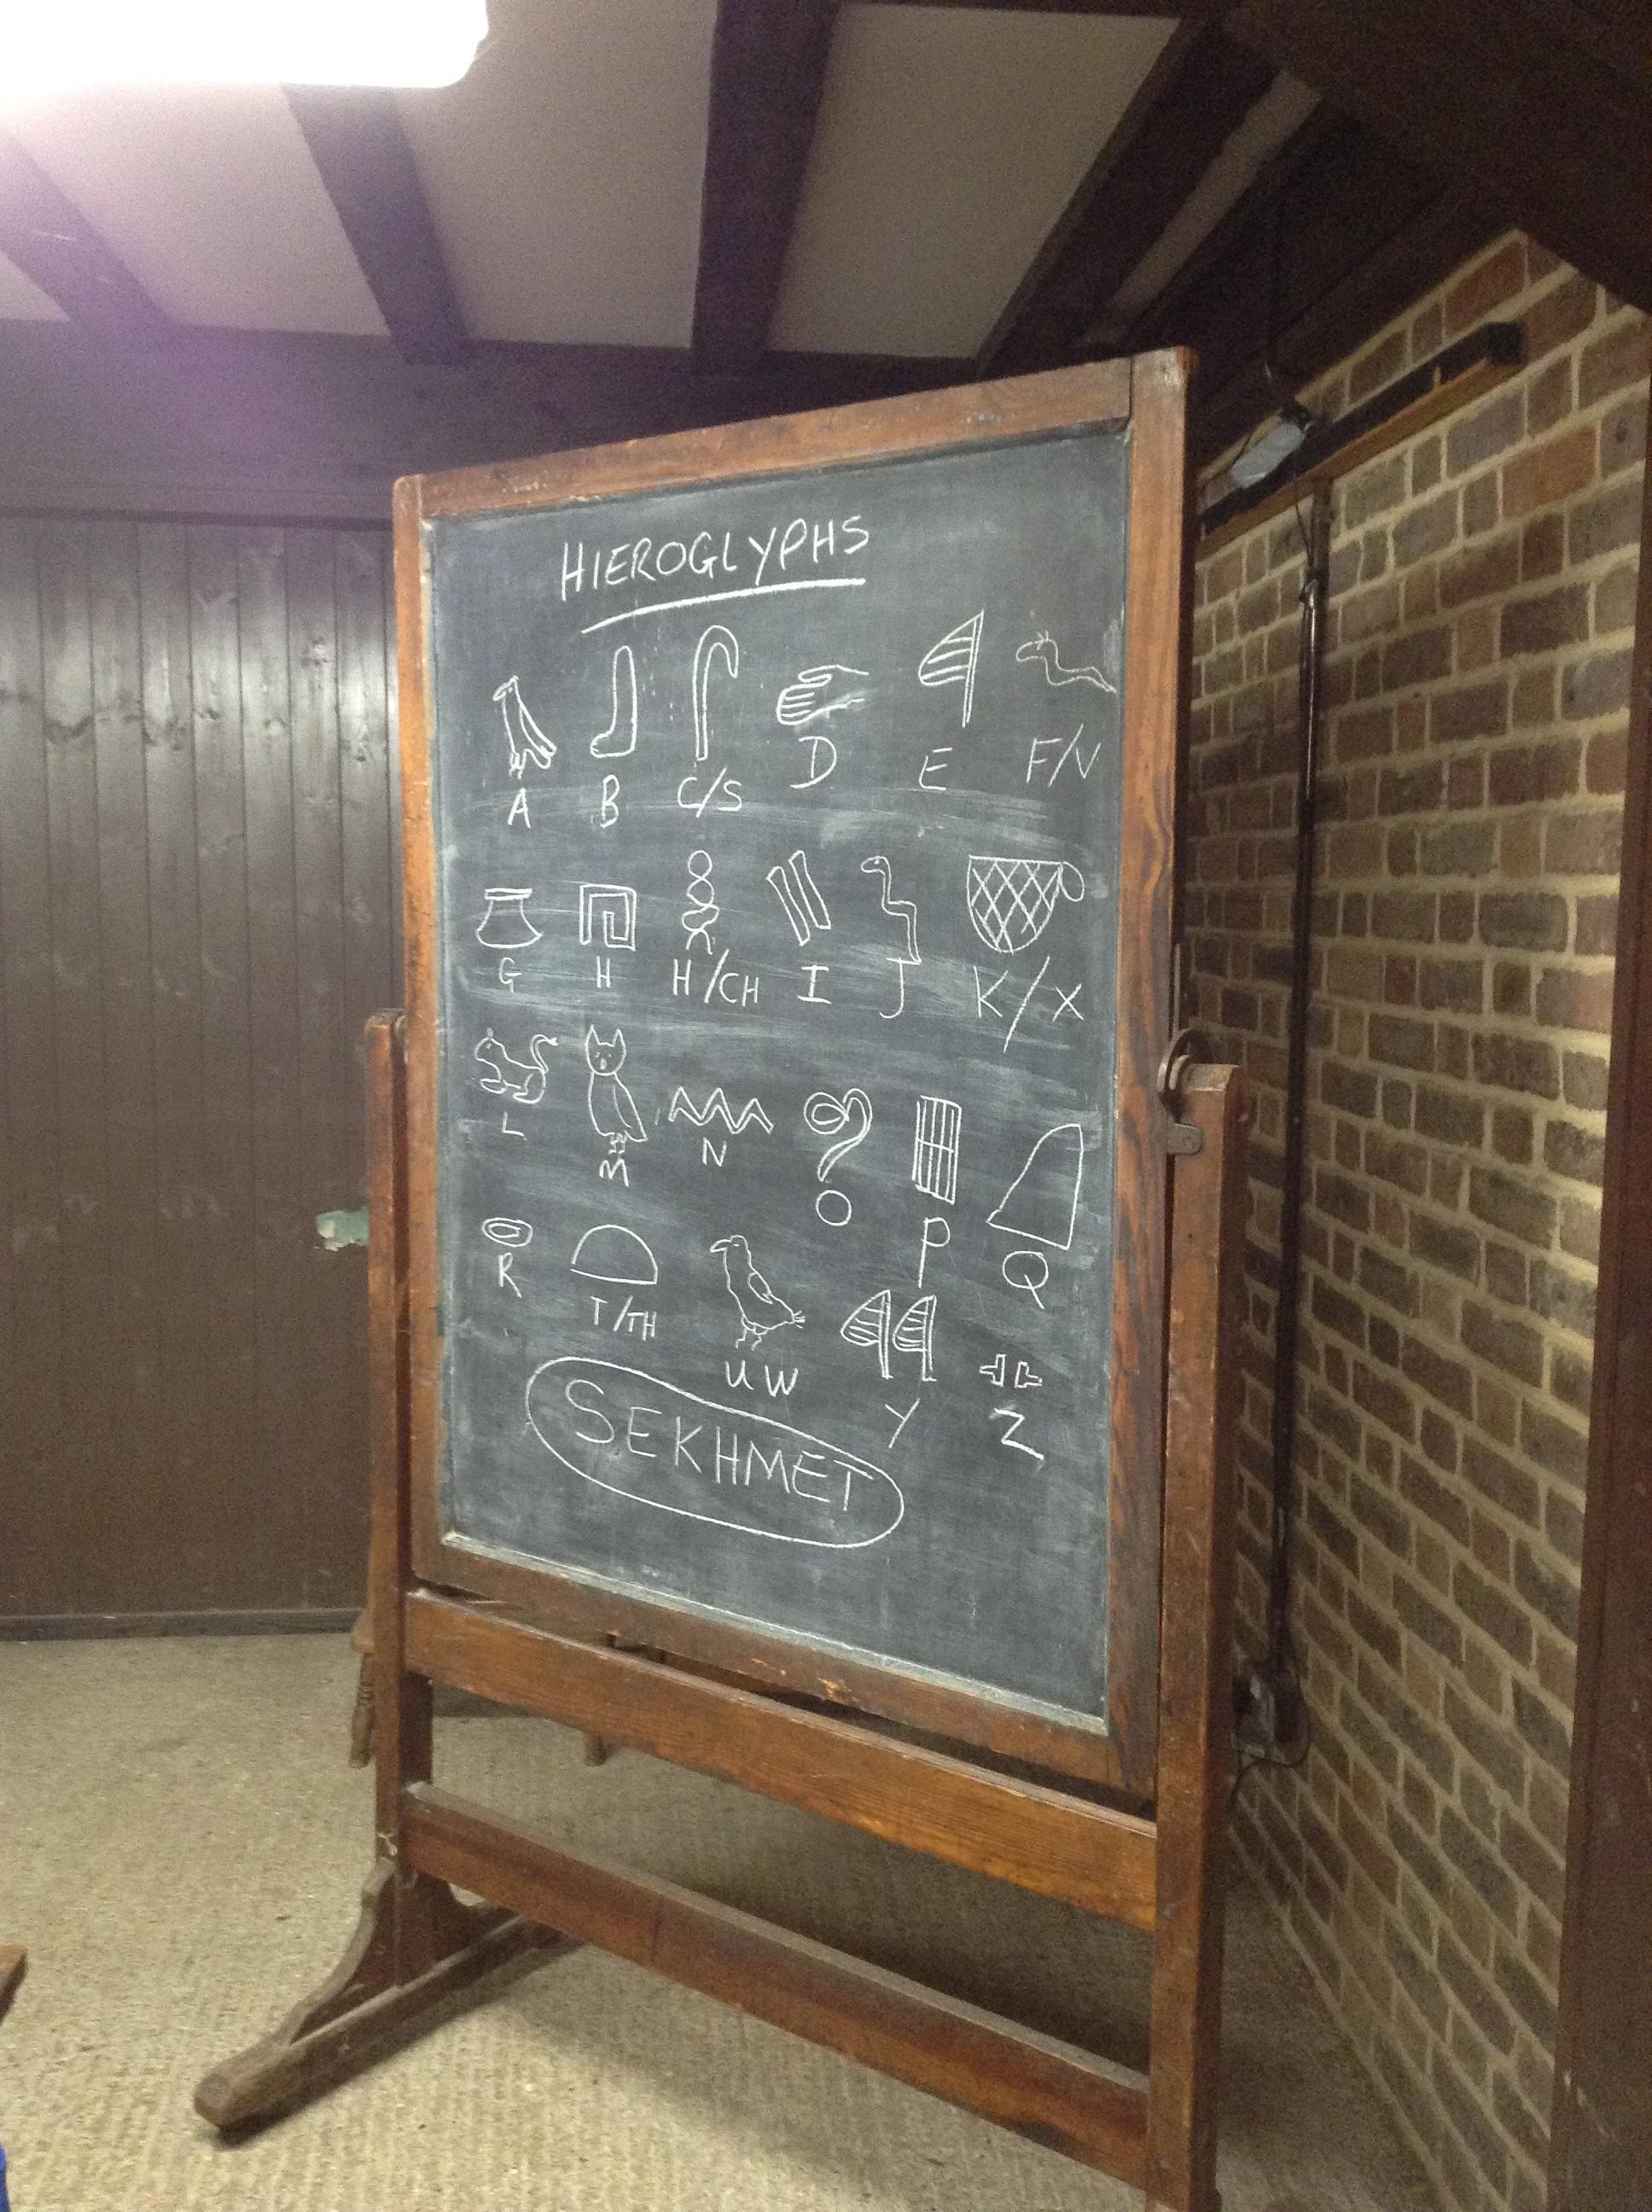 HIEROGLYPHS
A B C/S D E F/V
G H H/CH I J K/X
L M N O P Q
R T/TH U W Y Z
SEKHMET